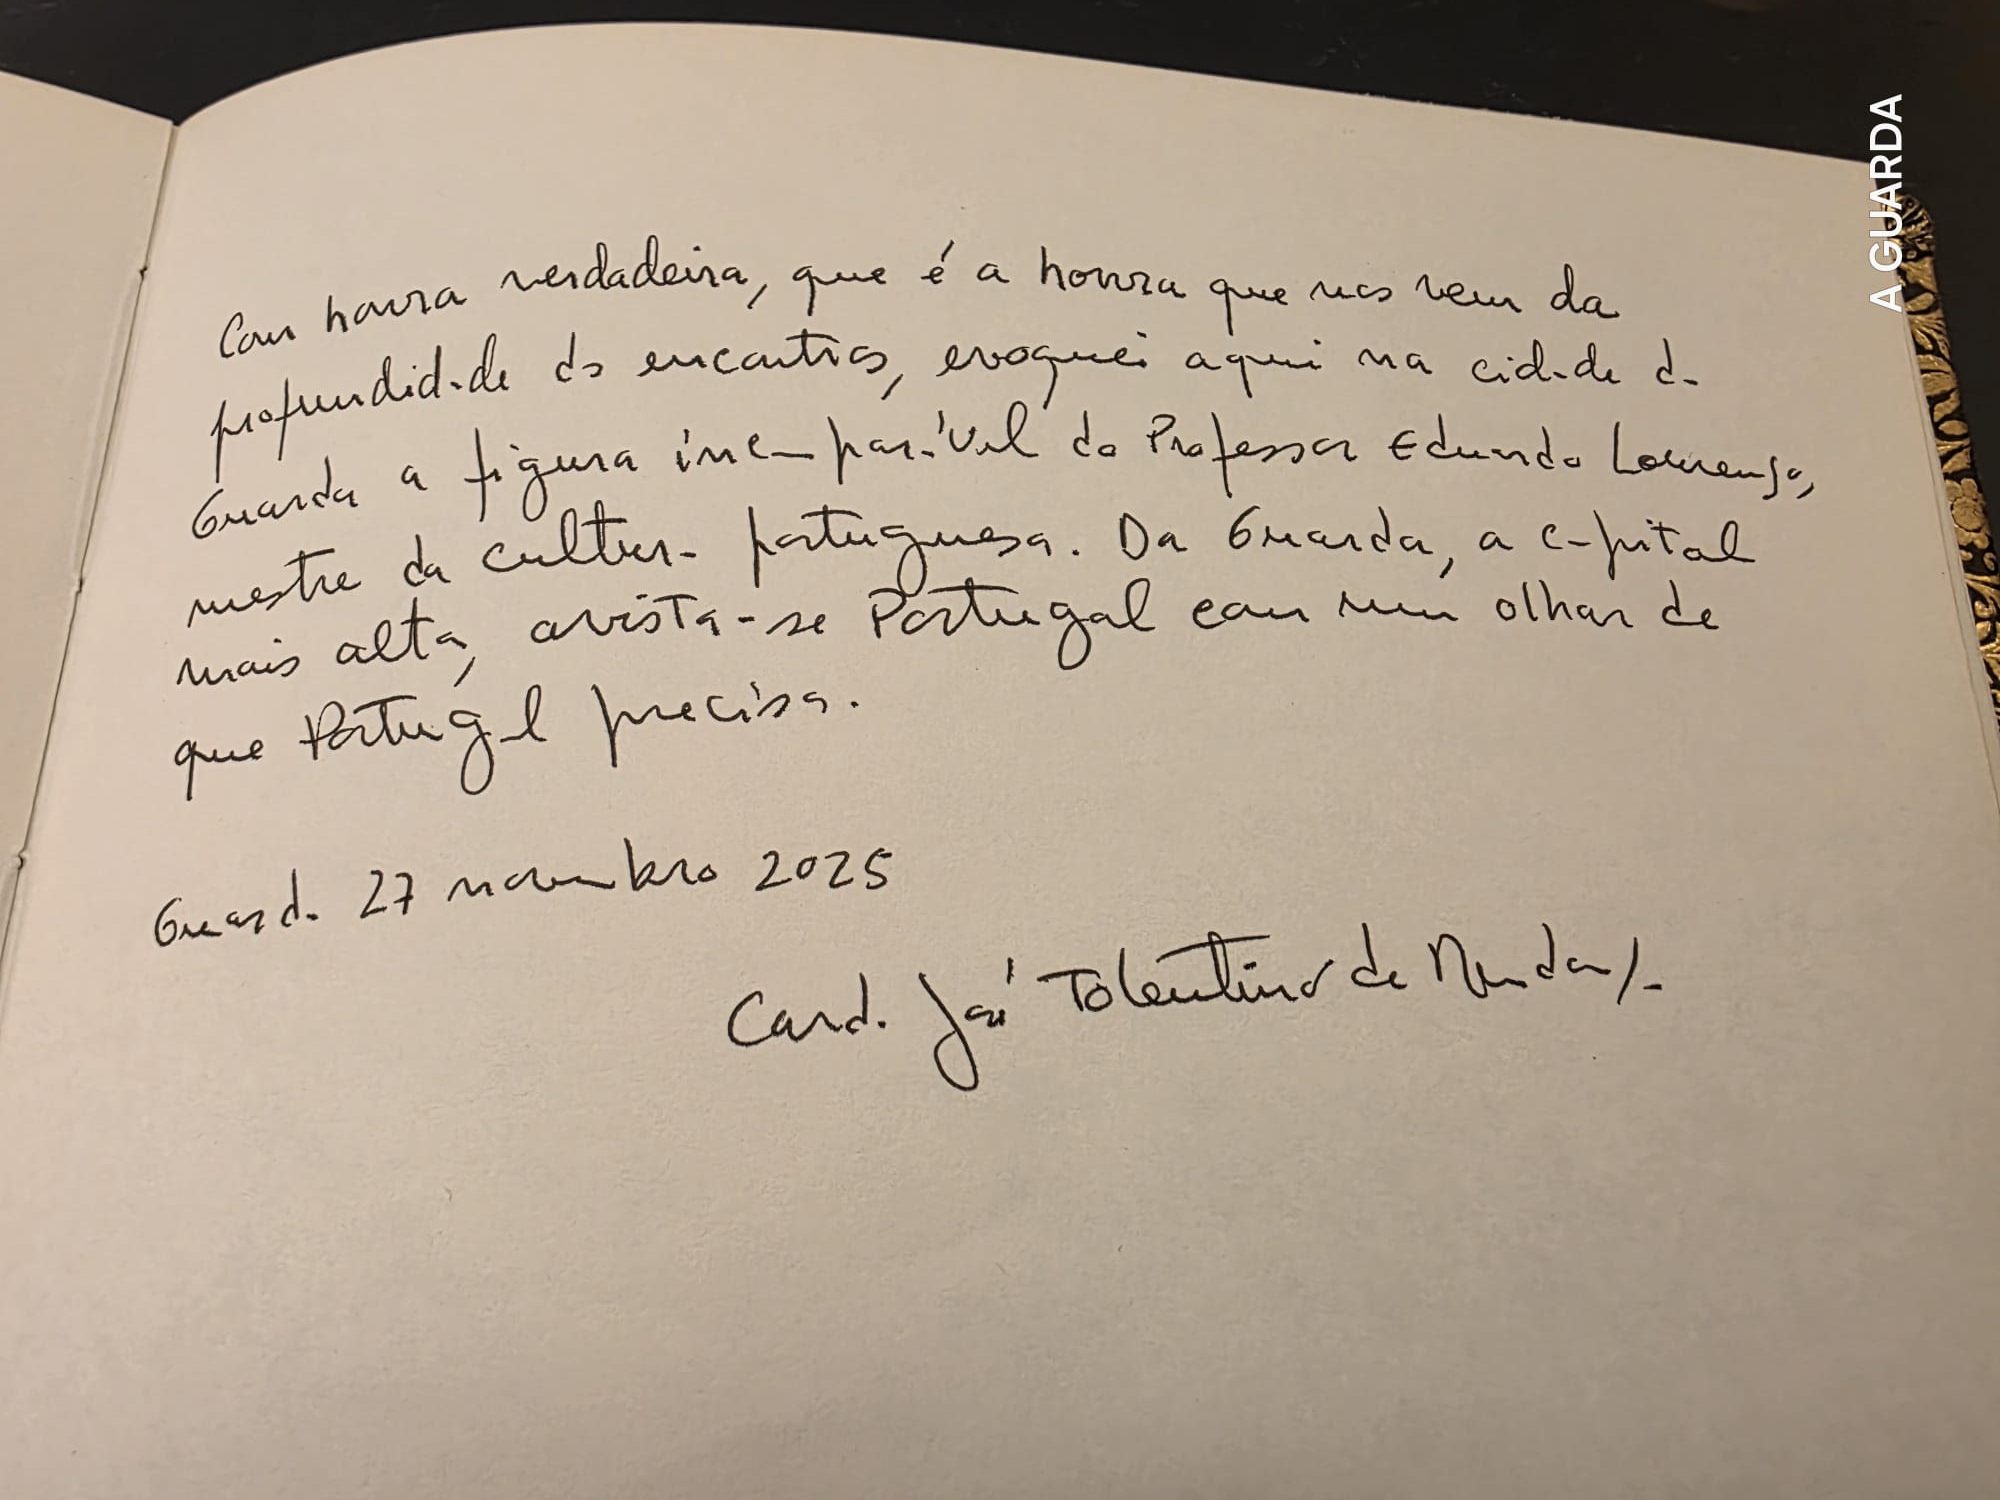 Com honra verdadeira, que é a honra que nos vem da
profundidade do encontros, evoquei aqui na cidade da
Guarda a figura incomparável do Professor Eduardo Lourenço,
mestre da cultura portuguesa. Da Guarda, a capital
mais alta, avista-se Portugal com um olhar de
que Portugal precisa.
Guarda 27 novembro 2025
Card. José Tolentino de Mendonça
A GUARDA